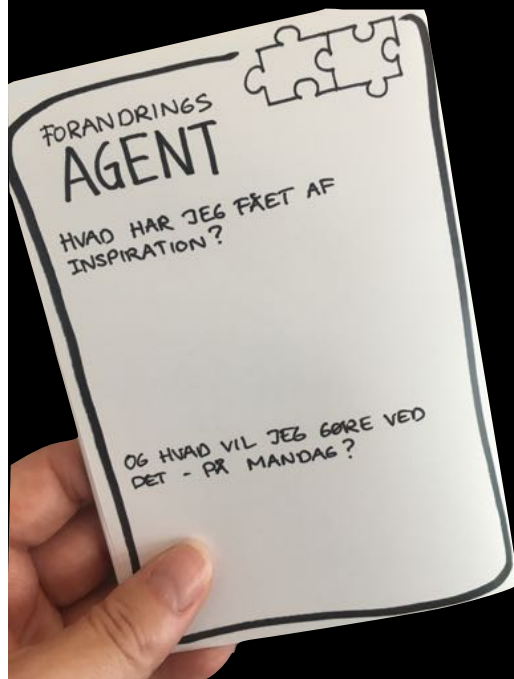 FORANDRINGS
AGENT
HVAD HAR JEG FÅET AF
INSPIRATION?
OG HVAD VIL JEG GØRE VED
DET - PÅ MANDAG?